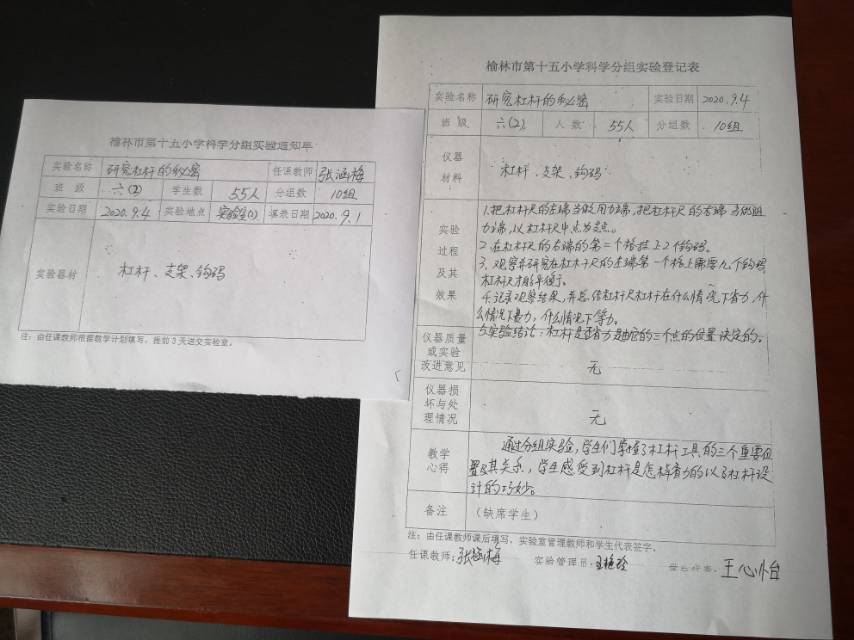 榆林市第十五小学科学分组实验通知单
实验名称 研究杠杆的秘密 任课教师 张涵梅
班 级 六(2) 学生数 55人 分组数 10组
实验日期 2020.9.4 实验地点 实验室(1) 填表日期 2020.9.1
实验器材 杠杆、支架、钩码
注：由任课教师根据教学计划填写，提前3天送交实验室。
榆林市第十五小学科学分组实验登记表
实验名称 研究杠杆的秘密 实验日期 2020.9.4
班 级 六(2) 人 数 55人 分组数 10组
仪器
材料
杠杆、支架、钩码
实验
过程
及其
效果
1.把杠杆尺的左端当做用力端,把杠杆尺的右端当做阻
力端,以杠杆尺中点为支点。
2.在杠杆尺的右端的第二个格挂上2个钩码。
3.观察并研究在杠杆尺的左端第一个格上需要几个钩码
杠杆尺才能平衡。
4.记录观察结果,并总结杠杆尺杠杆在什么情况下省力,什
么情况下费力,什么情况下等力。
5.实验结论:杠杆是否省力是由它的三个点的位置决定的。
仪器质量
或实验
改进意见
无
仪器损
坏与处
理情况
无
教学
心得
通过分组实验,学生们掌握了杠杆工具的三个重要位
置及其关系,学生感受到杠杆是怎样省力的以及杠杆设
计的巧妙。
备注 （缺席学生）
注：由任课教师课后填写，实验室管理教师和学生代表签字。
任课教师：张涵梅 实验管理员： 学生代表：王心怡